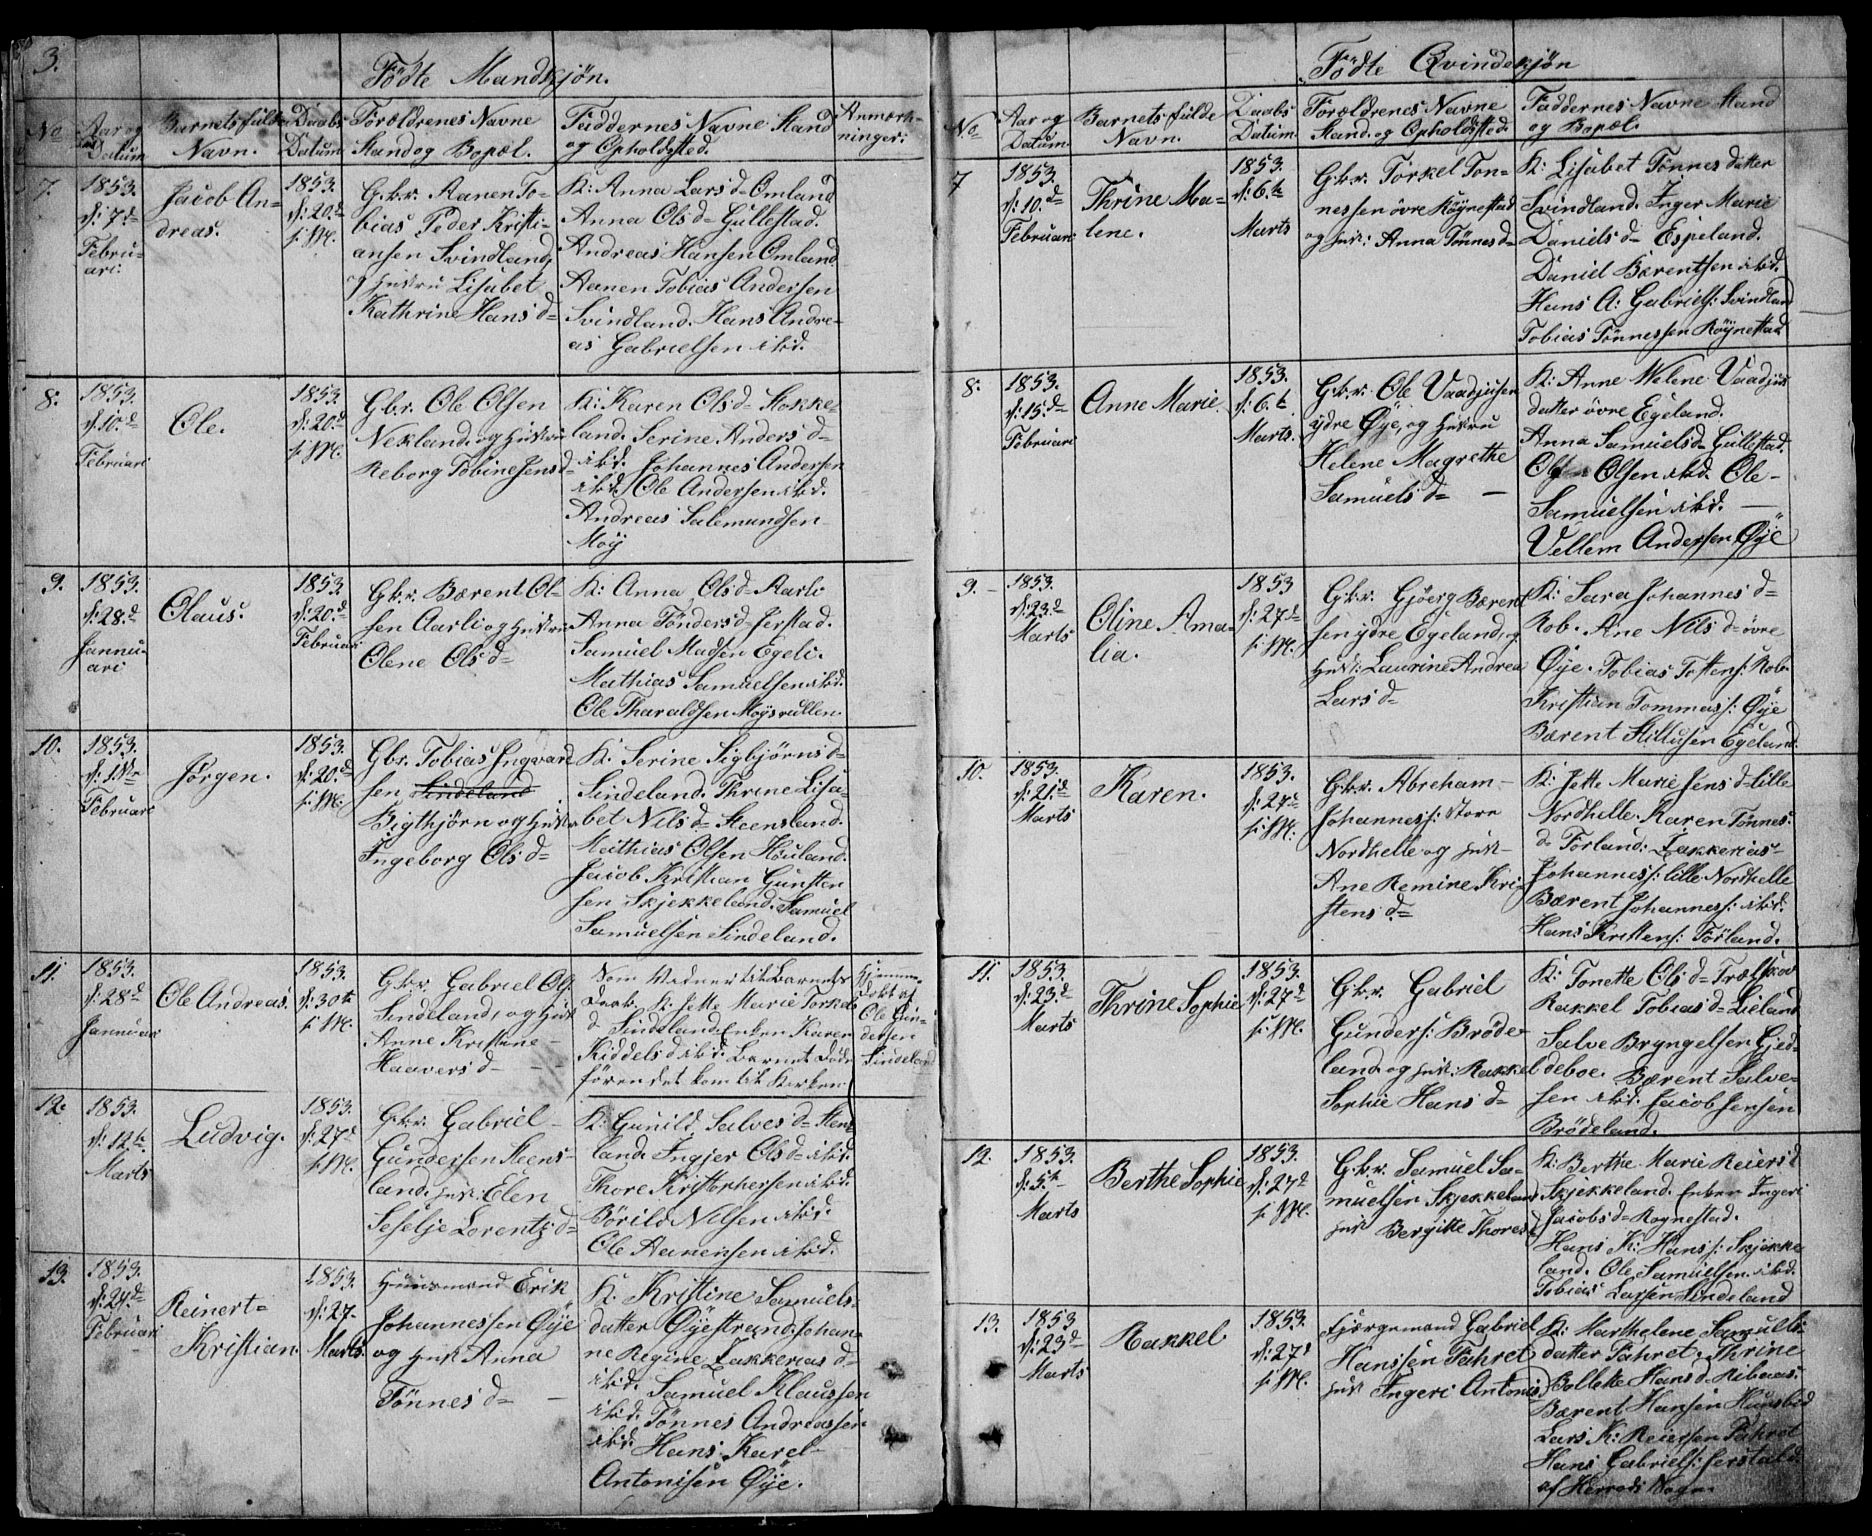 3.
Födte Mandkjön.
No
Aar og
Datum
Barnets fulde
Navn.
Daabs
Datum
Forældrenes Navne
Stand og Bopæl.
Faddernes Navne Stand
og Opholdssted.
Anmærk-
ninger.
7.
1853.
d: 7de
Februari
Jacob An-
dreas.
1853.
d: 20.d
s: M.
Gbr. Aanen To-
bias Peder Kristi-
ansen Svindland,
og Hustru Lisabet
Kathrine Hans d=
K: Anna Lars d= Omland
Anna Ols d= Gullestad.
Andreas Hansen Omland
Aanen Tobias Andersen
Svindland. Hans Andre-
as Gabrielsen ibid.
8.
1853.
d: 10.d
Februari
Ole.
1853.
d: 20.d
s: M.
Gbr. Ole Olsen
Nekland og Hustru
Reborg Tobine Jens d=
K: Karen Ols d= Stokke-
land. Serine Anders d=
ibid. Johannes Andersen
ibid. Ole Andersen ibid.
Andreas Salemundsen
Moy
9.
1853.
d: 28.d
Januari
Olaus.
1853.
d: 20.d
Februari
Gbr. Bærent Ol-
sen Aarli og Hustru
Olene Ols d=
K: Anna Ols d= Aarli
Anna Tönders d= Jerstad.
Samuel Madsen Egeli.
Mathias Samuelsen ibid.
Ole Tharaldsen Moysvallen.
10.
1853.
Februari
Jörgen.
1853.
d: 20.d
s: M.
Gbr. Tobias Ingvard
sen Sindeland
Bigthjörn og Hustr
Ingeborg Ols d=
K: Serine Sigbjörns d=
Sindeland. Thrine Lisa-
bet Nils d= Steensland.
Mathias Olsen Höuland.
Jacob Kristian Gunsten
sen Skjekkeland. Samuel
Samuelsen Sindeland.
11.
1853.
d: 28d
Januari
Ole Andreas.
1853.
d: 30te
s: M.
Gbr. Gabriel Ols
Sindeland, og Hust
Anne Kristine
Haavers d=
Som Vidner til Barnets
Daab. K: Jette Marie Torkel
d Sindeland. Enken Karen
Kiddels d ibid. Barnet döde
förend det kom til Kirken
Hjemme-
döbt af
Ole Gun-
dersen
Sindeland
12.
1853.
d: 12te
Marts
Ludvig.
1853.
d: 27d
s: M.
Gbr. Gabriel
Gundersen Steens-
land. Hust: Elen
Seselje Lorentz d=
K: Gunild Salves d= Steens
land. Ingjer Ols d= ibid.
Thore Kristophersen ibid.
Börild Nilsen ibid.
Ole Aanensen ibid.
13.
1853.
d: 24.de
Februari
Reinert=
Kristian.
1853.
d: 27-
Marts.
Huusmand Erik
Johannessen Öÿe
og Hust Anna
Tönnes d=
K: Kristine Samuels-
datter Öÿestrand. Johan-
ne Regine Zakkerias d=
ibid. Samuel Klaussen
ibid. Tönnes Andreassen
ibid. Hans Karel
Antonisen Öÿe.
Födte Qvindekjön
No
Aar og
Datum
Barnets fulde
Navn.
Daabs
Datum.
Forældrenes Navne
Stand og Opholdssted.
Faddernes Navne Stand
og Bopæl.
7
1853
d: 10.d
Februari
Thrine Ma-
lene.
1853.
d: 6.te
Marts
Gbr. Torkel Ton-
nessen övre Röynestad
og Hust: Anna Tönnes d=
K: Lisabet Tönnes datter
Svindland. Inger Marie
Daniels d= Espeland.
Daniel Bærentsen ibid.
Hans A: Gabriels: Svindland
Tobias Tönnessen Röynestad
8.
1853.
d: 15.d
Februari
Anne Marie
1853.
d: 6.te
Marts.
Gbr. Ole Vaadjusen
ydre Öÿe, og Hustru
Helene Magrethe
Samuels d=
K: Anne Welene Vaadjus
datter övre Egeland.
Anna Samuels d= Gullestad.
Olsen ibid. Ole
Samuelsen ibid.
Vellem Andersen Öÿe
9.
1853.
d: 23.d
Marts
Oline Ama-
lia.
1853
d: 27d
s: M.
Gbr. Gjöerg Bærent
sen ydre Egeland, og
Hust: Laurine Andrea
Lars d=
K: Sara Johannes d=
Rob. Ane Nils d= övre
Öÿe. Tobias Tostens: Rob.
Kristian Tommas: Öÿe
Bærent Egeland.
10.
1853.
d: 21.d
Marts
Karen.
1853.
d: 27d
s: M.
Gbr. Abreham
Johanness: store
Nordhelle og Hust-
Ane Remine Kri-
stens d=
K: Jette Marie Jens d= lille
Nordhelle. Karen Tönnes:
d= Forland. Zakkerias-
Johanness: lille Nordhelle
Bærent Johanness: ibid.
Hans Kristens: Forland.
11.
1853.
d: 23.d
Marts
Thrine Sophie
1853.
d: 27d
s: M.
Gbr. Gabriel
Gunders: Bröde-
land og Hust: Rakkel
Sophie Hans d=
K: Tonette Ols d= Trælskov
Rakkel Tobias d= Lieland
Salve Bryngelsen Gjed-
deboe. Bærent Salve-
sen ibid. Jacob Jensen
Brödeland.
12
1853.
d: 5.te
Marts
Berthe Sophie
1853.
d: 27d
s: M.
Gbr. Samuel Sa-
muelsen Skjekkeland
Hust Bergitte Thores d
K: Berthe Marie Reiers d
Skjekkeland. Enken Ingeri
Jacobs d= Rognestad.
Hans K: Hans: Skjekke
land. Ole Samuelsen ibid.
Tobias Larsen Sindeland
13.
1853
d: 23d
Marts
Rakkel
1853.
d: 27d
s: M.
Fjærgemand Gabriel
Hanssen Fahret
Hust Ingeri Antonis d
K: Marthelene Samuels-
datter Fahret. Thrine
Bollette Hans d Ribaas.
Bærent Hansen Hunsbed
Lars K: Reiersen Fahret
Hans Gabriels: Jerstald.
af Herreds Sogn.